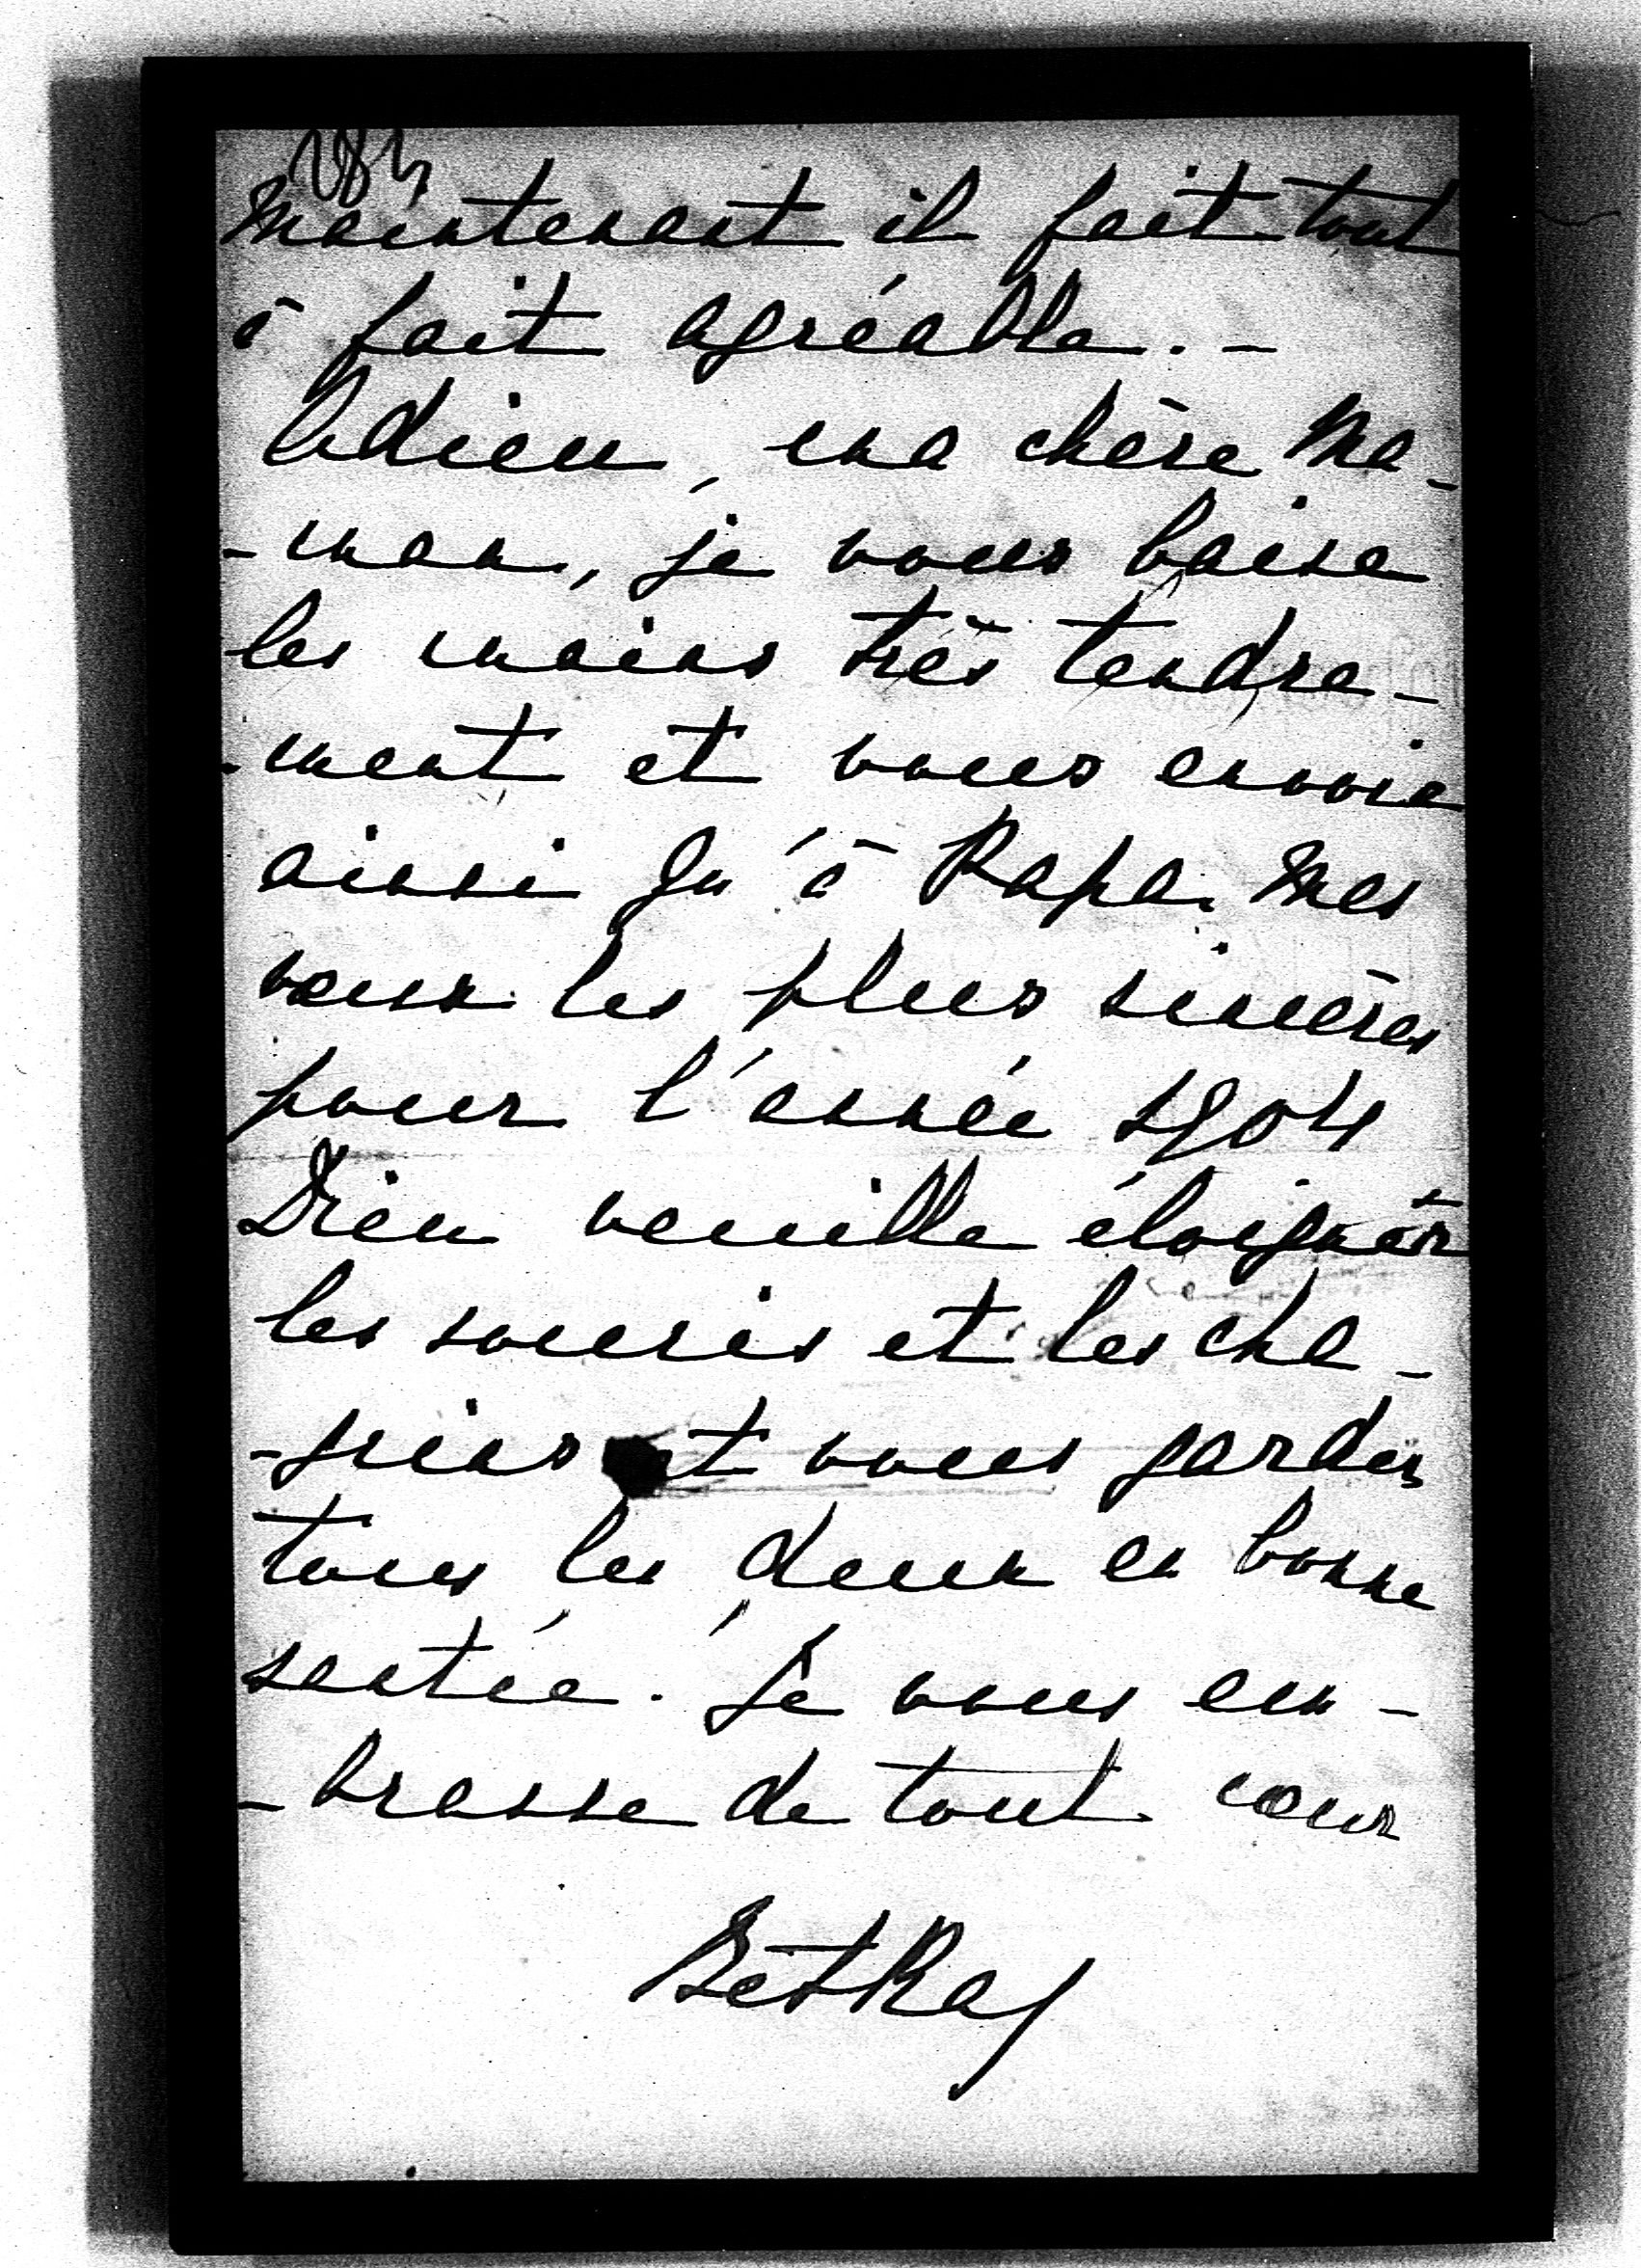 Maintenant il fait tout
à fait agréable. –
Adieu, ma chère Ma-
-man, je vous baise
les mains très tendre-
-ment et vous envoie
ainsi qu'à Papa mes
vœux les plus sincères
pour l'année 1904
Dieu veuille éloigner
les soucis et les cha-
-grins et vous garder
tous les deux en bonne
santée. Je vous em-
-brasse de tout cœur